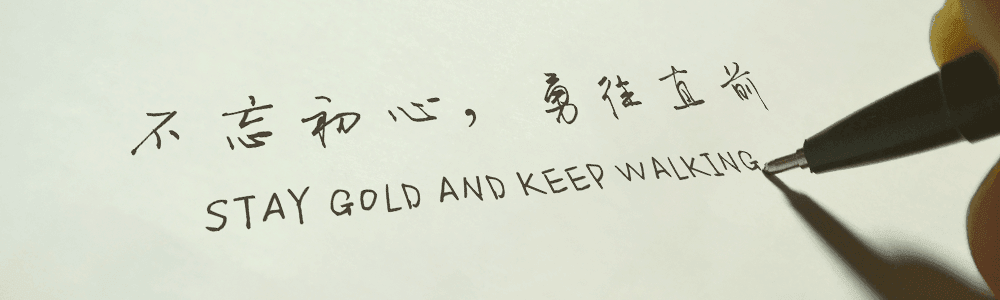 不忘初心，勇往直前
STAY GOLD AND KEEP WALKING